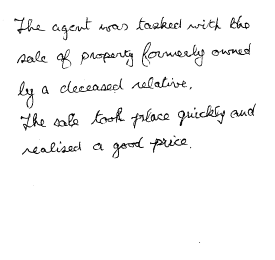 The agent was tasked with the
sale of property formerly owned
by a deceased relative.
The sale took place quickly and
realised a good price.